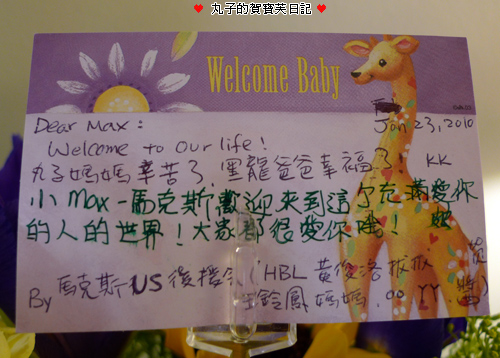 ♥ 丸子的賀寶芙日記 ♥
Welcome Baby
Jan 23, 2010
Dear Max:
Welcome to our life!
丸子媽媽辛苦了, 黑龍爸爸幸福了! KK
小Max-馬克斯歡迎來到這充滿愛你
的人的世界!大家都很愛你哦!
By 馬克斯US後援會(HBL 黃俊洛叔叔
鈴鳳媽媽. YY